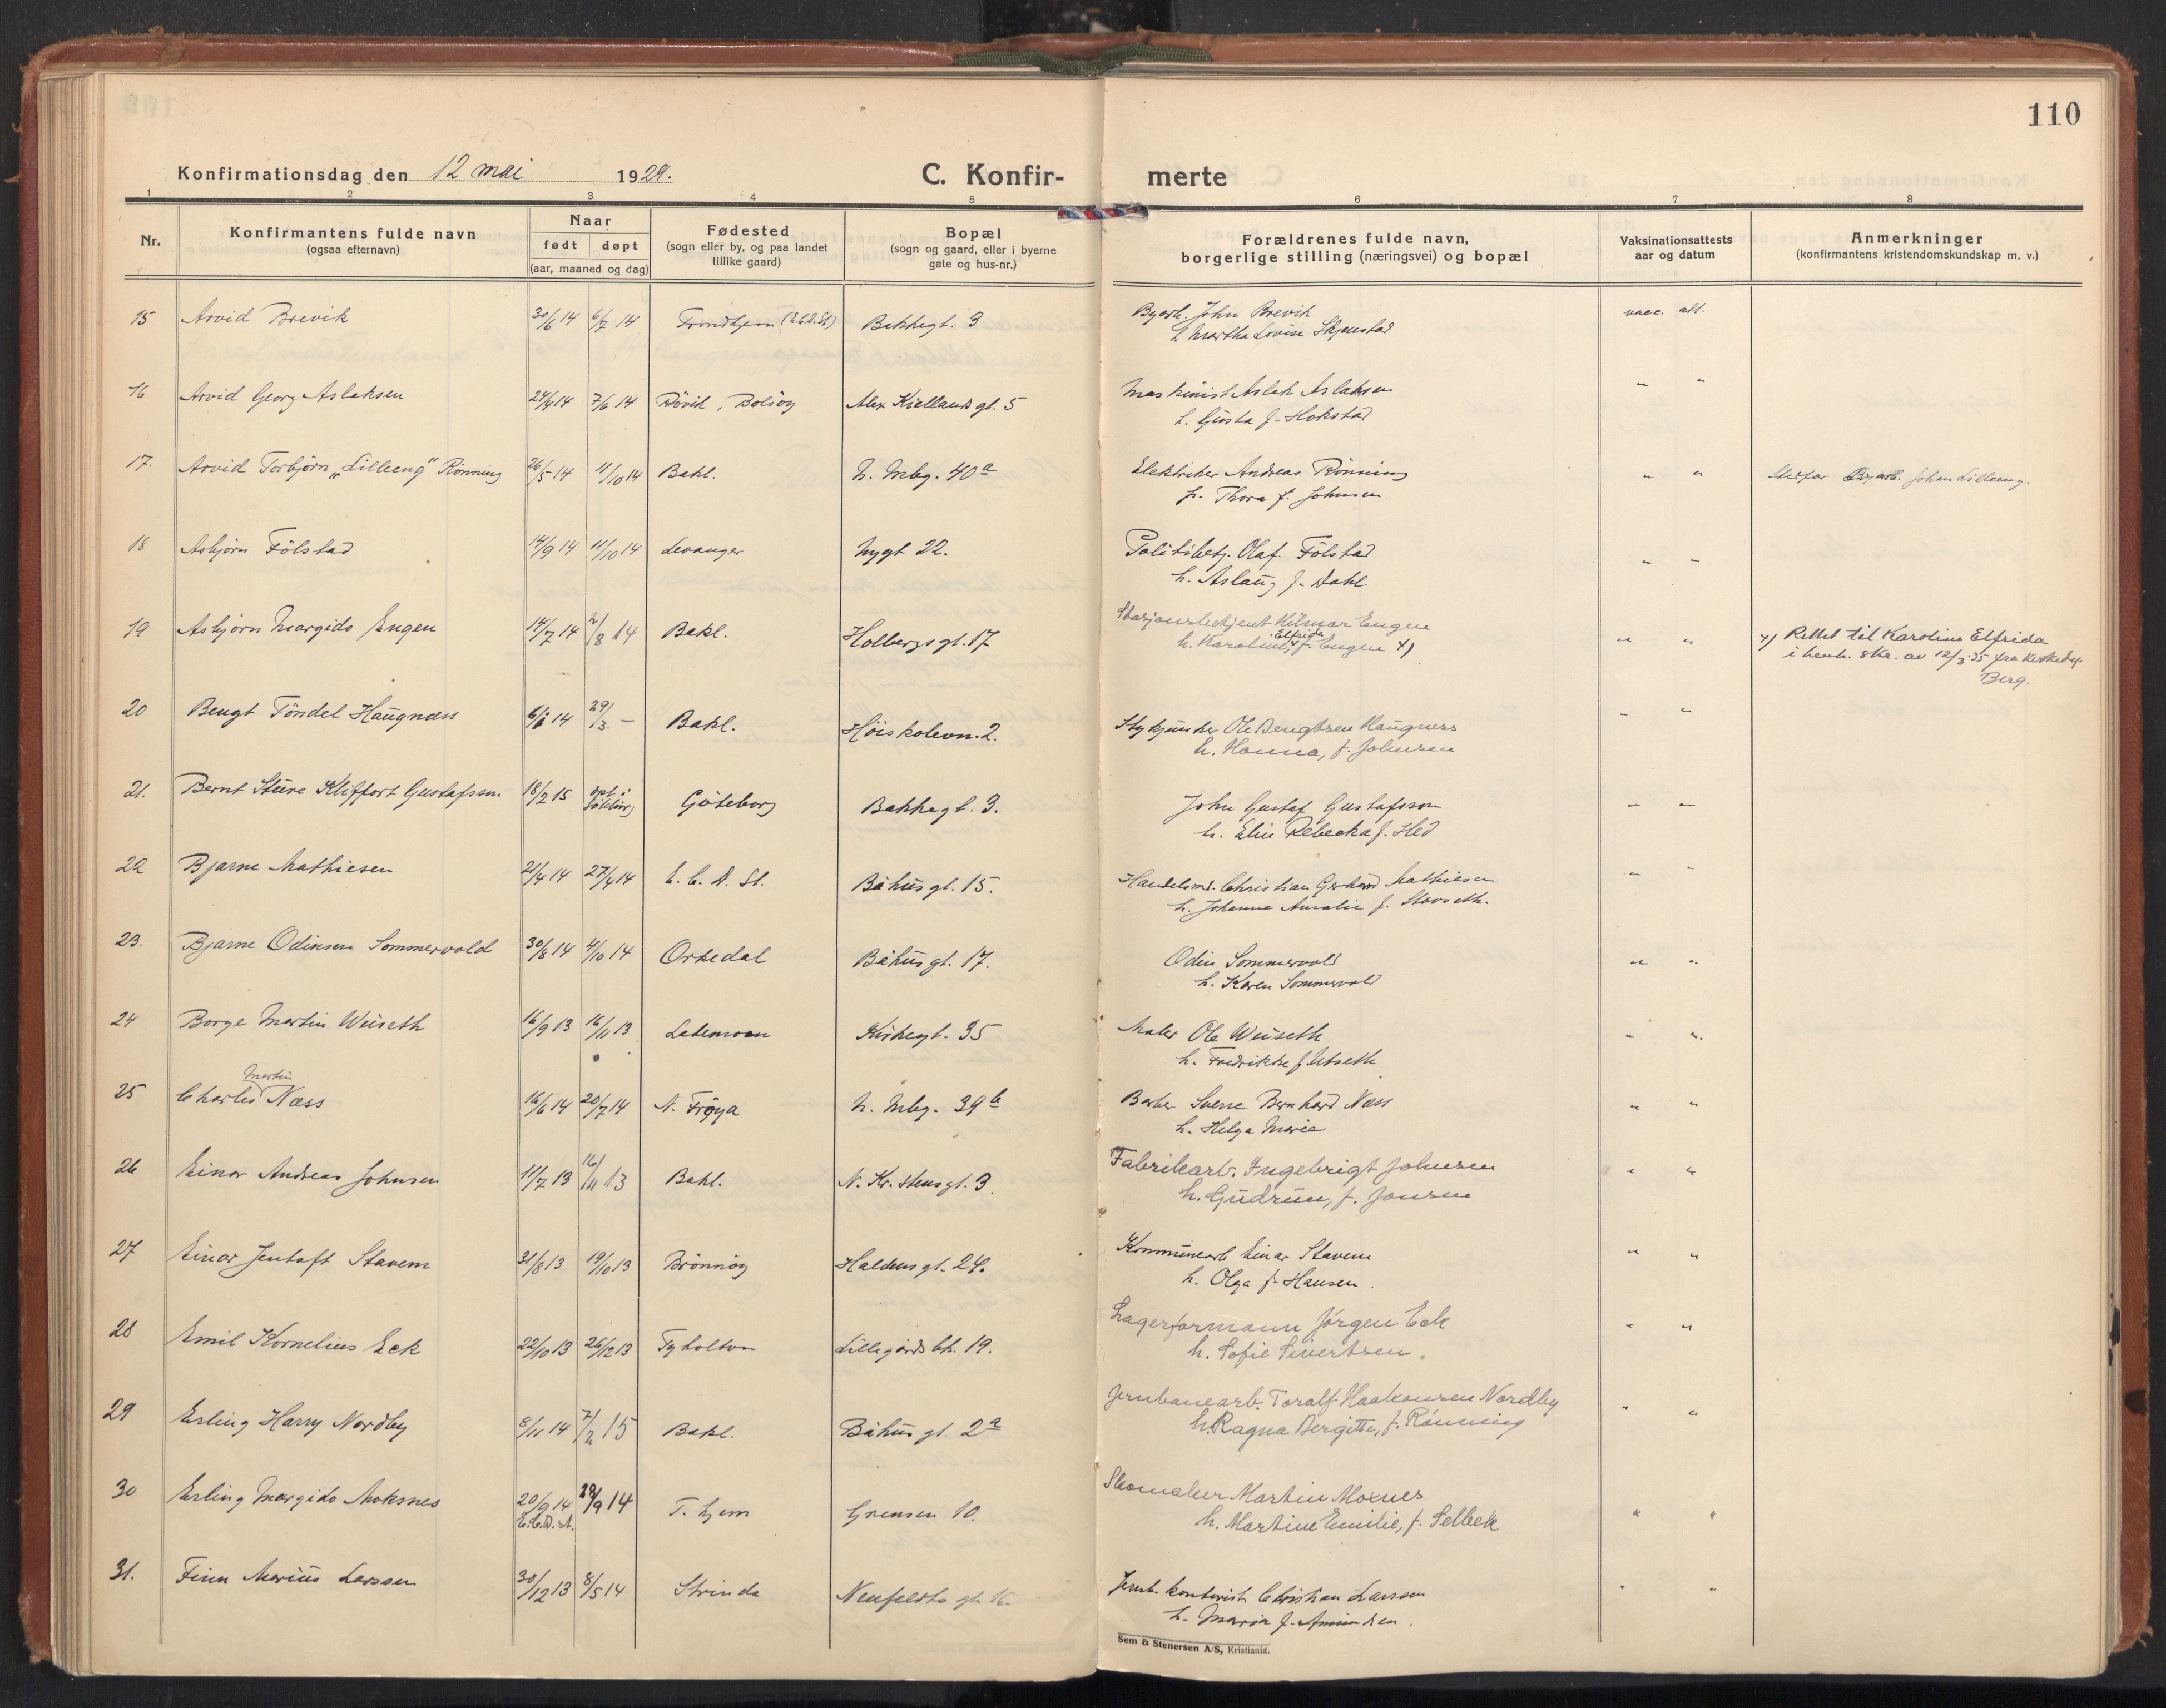 110
Konfirmationsdag den 12 mai 1929.
C. Konfir- merte
1 2 3 4 5 6 7 8
Nr.
Konfirmantens fulde navn
(ogsaa efternavn)
Naar
født døpt
(aar, maaned og dag)
Fødested
(sogn eller by, og paa landet
tillike gaard)
Bopæl
(sogn og gaard, eller i byerne
gate og hus-nr.)
Forældrenes fulde navn,
borgerlige stilling (næringsvei) og bopæl
Vaksinationsattests
aar og datum
Anmerkninger
(konfirmantens kristendomskundskap m. v.)
15 Arvid Brevik 30/6 14 6/7 14 Trondhjem (E.C.D.St) Bakkegt. 3 Byarb. John Brevik vacc. att.
h. Martha Lovise Skjenstad
16 Arvid Georg Aslaksen 24/4 14 7/6 14 Røvik, Bolsøy Alex Kiellands gt. 5 Maskinist Aslak Aslaksen " "
h. Gusta f. Hokstad
17. Arvid Torbjørn „Lilleeng" Rønning 26/5 14 11/10 14 Bakl. N. Mbg. 40a Elektriker Andreas Rønning " " Stefar Byarb. Johan Lilleeng.
h. Thora f. Johnsen.
18 Asbjørn Fölstad 14/9 14 11/10 14 Levanger Nygt 22. Politibetj. Olaf Fölstad " "
h. Aslaug f. Dahl.
19 Asbjørn Margido Engen 14/7 14 2/8 14 Bakl. Holbergs gt. 17 Stasjonsbetjent Hilmar Engen " " x) Rettet til Karoline Elfrida
h. Karoline Elfrida, f. Engen x) i henh. skr. av 12/3 35 fra Kirkedep.
Berg.
20 Bengt Töndel Haugnæss 6/1 14 29/3 – Bakl. Höiskolevn. 2. Stykjunker Ole Bengtsen Haugness " "
h. Hanna, f. Johnsen
21. Bernt Sture Kliffort Gustafsson 18/2 15 Göteborg Bakkegt. 3. John Gustaf Gustafsson " "
h. Elin Rebecka f. Hed
22 Bjarne Mathiesen 21/4 14 27/4 14 E. C. D. St. Båhus gt. 15. Handelsm. Christian Gerhard Mathiesen " "
h. Johanne Amalie f. Stavseth.
23. Bjarne Odinsen Sommervold 30/8 14 4/10 14 Orkedal Båhus gt. 17. Odin Sommervold " "
h. Karen Sommervold
24 Borge Martin Wuseth 16/9 13 16/11 13 Lademoen Kirkegt. 35 Maler Ole Wuseth " "
h. Fredrikke f. Utseth
25 Charles Martin Næss 16/6 14 20/7 14 N. Frøya N. Mbg. 39b Barber Sverre Bernhard Næss " "
h. Helga Marie
26 Einar Andreas Johnsen 11/7 13 16/11 13 Bakl. N. Kr. stens gt. 3. Fabrikarb. Ingebrigt Johnsen " "
h. Gudrun, f. Jonsen
27 Einar Jentoft Stavem 31/8 13 19/10 13 Brønnøy Haldens gt. 24. Kommunearb Einar Stavem " "
h. Olga f. Hansen.
28 Emil Kornelius Eck 22/10 13 26/12 13 Tyholten Lillegårds bk. 19. Lagerformann Jørgen Eck " "
h. Sofie Sivertsen.
29 Erling Harry Nordby 8/11 14 7/2 15 Bakl. Båhus gt. 2a Jernbanearb. Toralf Haakonsen Nordby " "
h. Ragna Bergitte, f. Rønning
30 Erling Margido Moksnes 20/9 14 28/9 14 T. hjem Grensen 10. Skomaker Martin Moxnes " "
E.C.D.st. h. Martine Emilie, f. Selbek
31. Finn Marius Larssen 30/12 13 8/5 14 Strinda Neufeldts gt. 16. Jernb. kontorist Christian Larssen " "
h. Maria f. Amundsen.
Sem & Stenersen A/S, Kristiania.